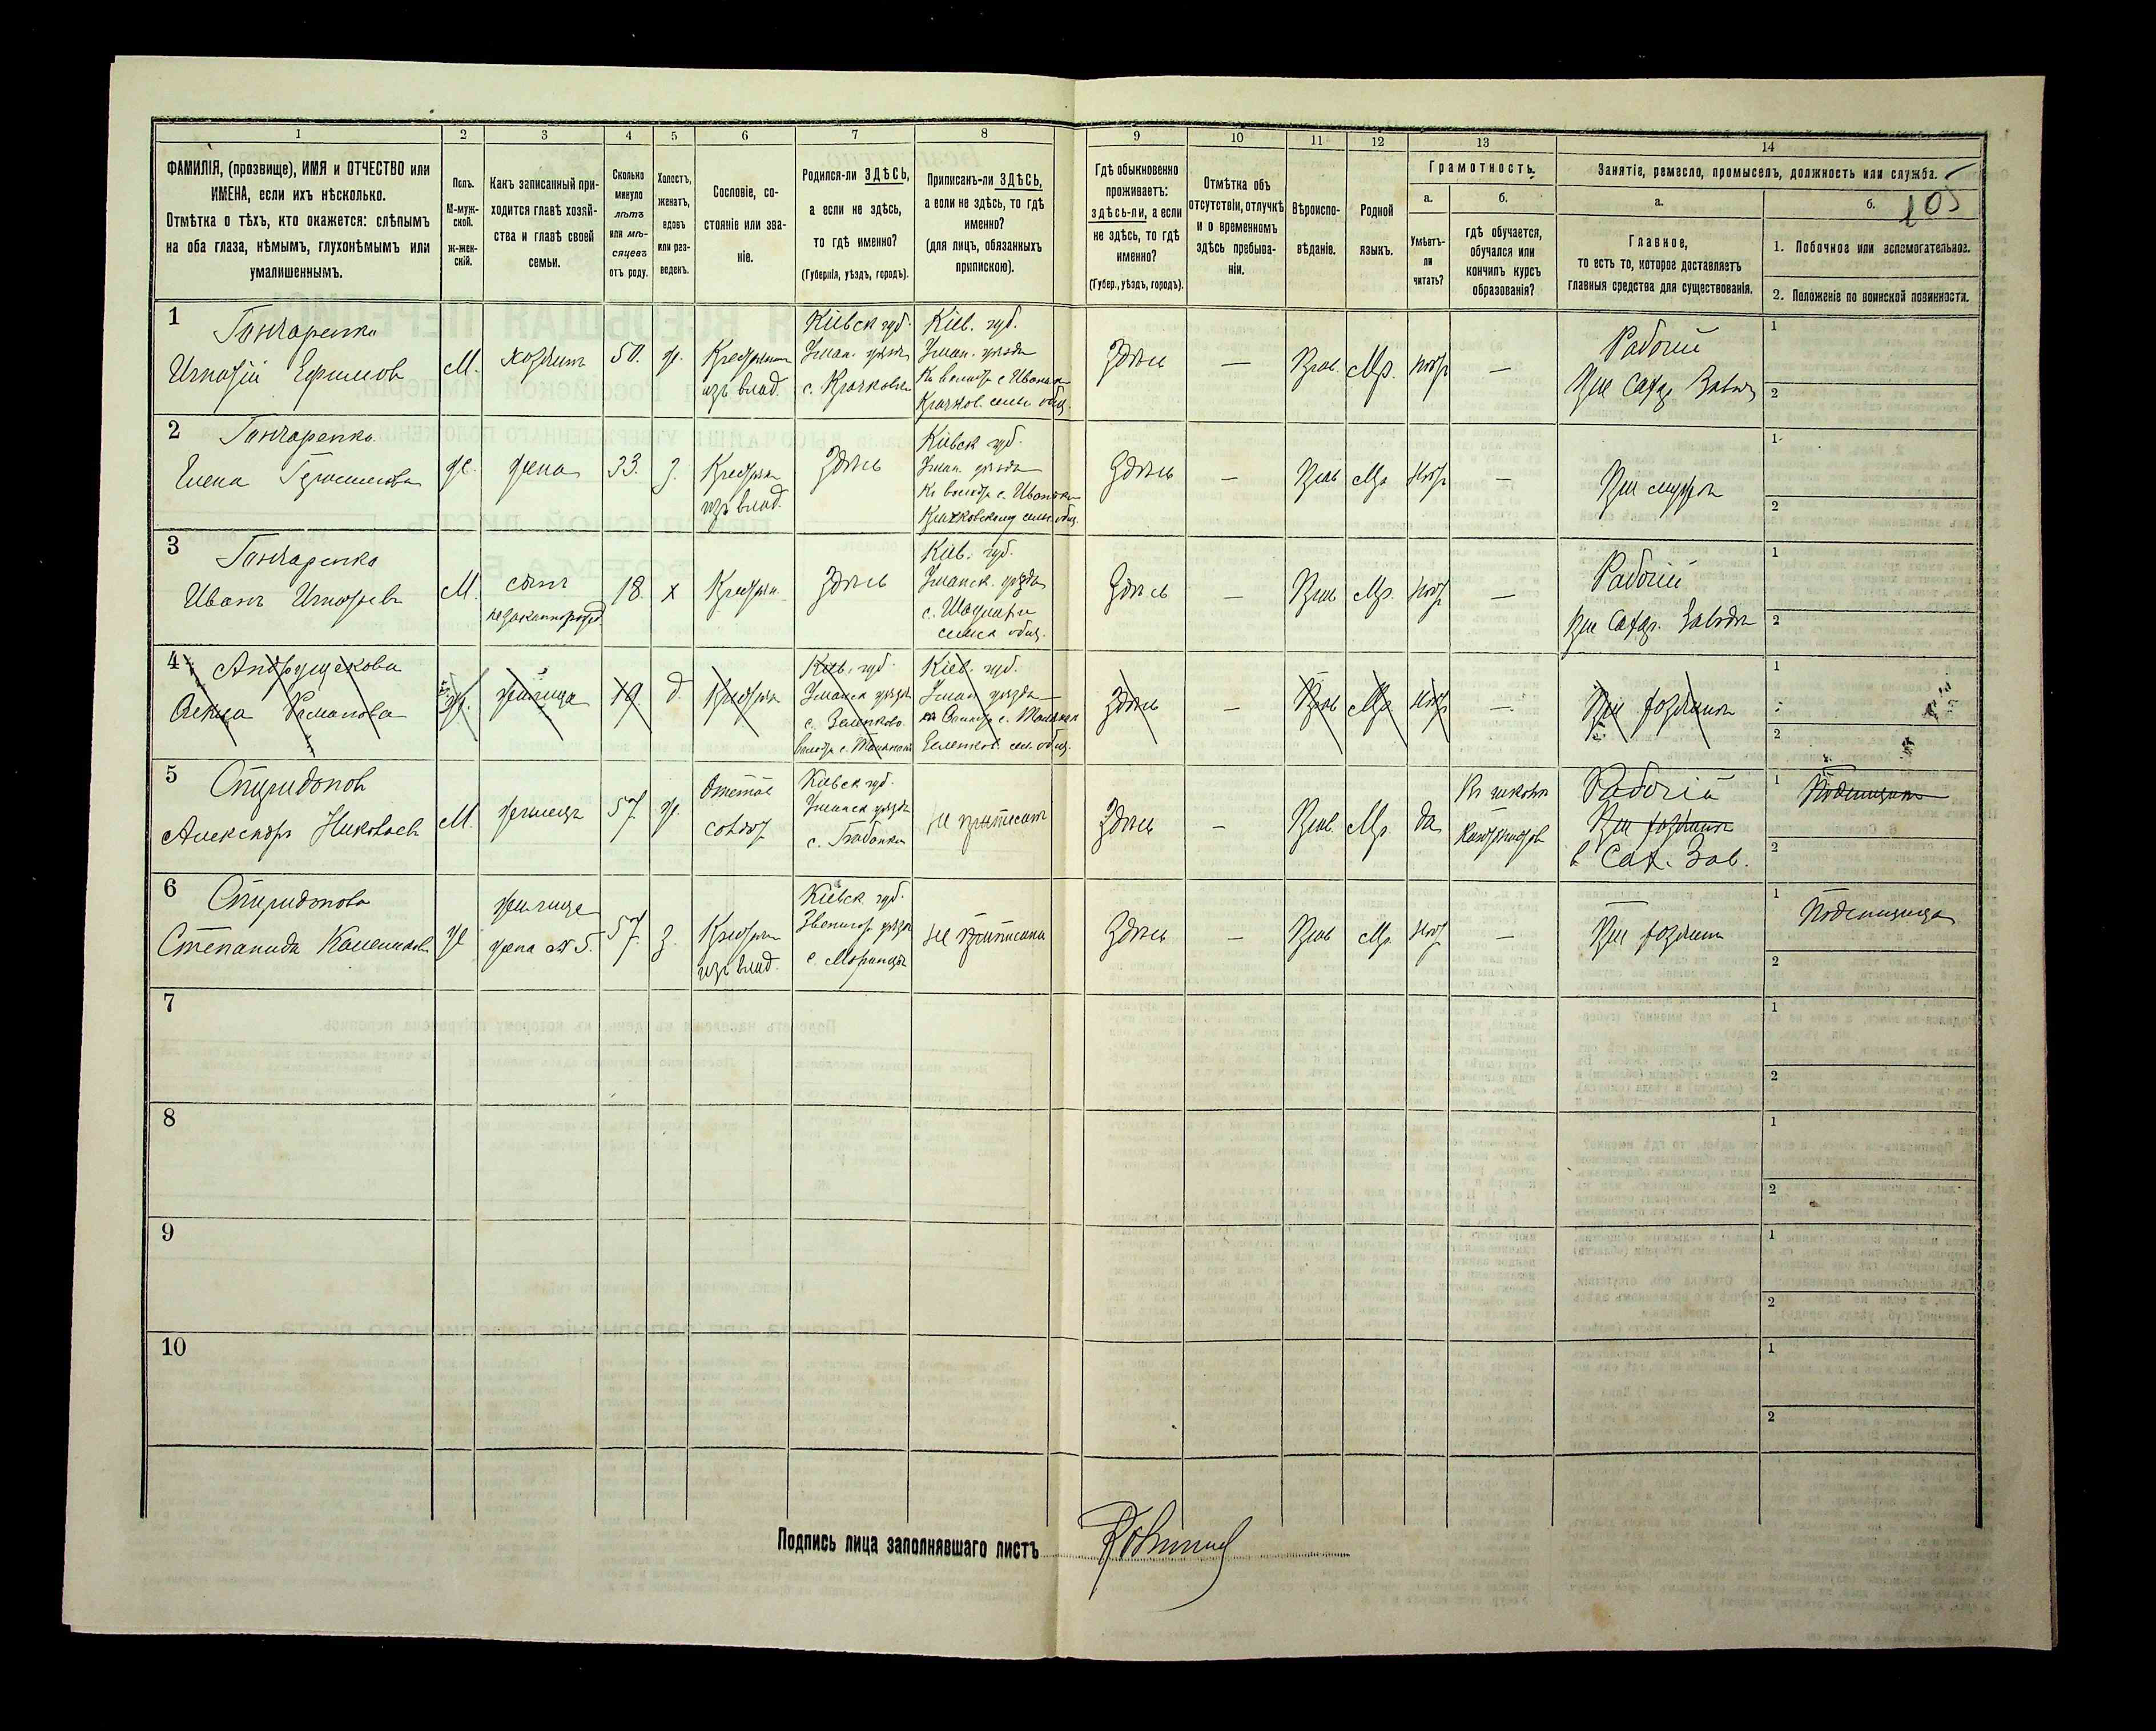 1
2
3
4
5
6
7
8
9
10
11
12
13
14
ФАМИЛІЯ, (прозвище), ИМЯ и ОТЧЕСТВО или
ИМЕНА, если ихъ нѣсколько.
Отмѣтка о тѣхъ, кто окажется: слѣпымъ
на оба глаза, нѣмымъ, глухонѣмымъ или
умалишеннымъ.
Полъ.
М-муж-
ской.
ж-жен-
скій.
Какъ записанный при-
ходится главѣ хозяй-
ства и главѣ своей
семьи.
Сколько
минуло
лѣтъ
или мѣ-
сяцевъ
отъ роду.
Холостъ,
женатъ,
вдовъ
или раз-
веденъ.
Сословіе, со-
стояніе или зва-
ніе.
Родился-ли ЗДѢСЬ,
а если не здѣсь,
то гдѣ именно?
(Губернія, уѣздъ, городъ).
Приписанъ-ли ЗДѢСЬ,
а если не здѣсь, то гдѣ
именно?
(для лицъ, обязанныхъ
припискою).
Гдѣ обыкновенно
проживаетъ:
здѣсь-ли, а если
не здѣсь, то гдѣ
именно?
(Губер., уѣздъ, городъ).
Отмѣтка объ
отсутствіи, отлучкѣ
и о временномъ
здѣсь пребыва-
ніи.
Вѣроиспо-
вѣданіе.
Родной
языкъ.
Грамотность.
а.
Умѣетъ-
ли
читать?
б.
гдѣ обучается,
обучался или
кончилъ курсъ
образованія?
Занятіе, ремесло, промыселъ, должность или служба.
а.
Главное,
то есть то, которое доставляетъ
главныя средства для существованія.
б.
105
1. Побочное или вспомогательное.
2. Положеніе по воинской повинности.
1
Гончаренко
Игнатій Ефимовъ
М.
хозяинъ
50.
ж.
Крестьян
изъ влад.
Кіевск губ.
Уман. уѣзда
с. Крачковка
Кіев. губ.
Уман. уѣзда
Крачков. сельс. общ.
Здѣсь
—
Прав.
Мр.
нѣт
—
Рабочій
При Сахар Заводѣ
1
2
2
Гончаренко
Елена Герасимова
ж.
жена
33.
з.
Крестьян
изъ влад.
Здѣсь
Кіевск губ.
Уман. уѣзда
Крачковскому сельс. общ.
Здѣсь
—
Прав
Мр
Нѣт
—
При мужѣ
1
2
3
Гончаренко
Иванъ Игнатьевъ
М.
сынъ
незаконнорожд
18.
х
Крестьян.
Здѣсь
Кіев. губ.
Уманск. уѣзда
сельск общ.
Здѣсь
—
Прав
Мр.
нѣт
—
Рабочій
При Сахар. Заводѣ
1
2
4
Романова
ж.
жилица
19.
д.
Крестьян
Кіев. губ.
Уманск уѣзда
Кіев. губ.
Уман. уѣзда
Здѣсь
—
Прав
Мр
Нѣт
—
При хозяинѣ
1
2
5
Спиридоновъ
Александръ Николаевъ
М.
жилецъ
57
ж.
Кіевск губ.
Уманск уѣзда
с. Бабанка
не приписанъ
Здѣсь
—
Прав.
Мр
да
Въ школѣ
Рабочій
При хозяинѣ
в Сах. Зав.
1
Поденщикъ
2
6
Спиридонова
Степанида
ж
жилица
жена №5.
57
з.
Крестьян
изъ влад.
Кіевск губ.
Звенигор уѣзда
с. Моринцы
не приписана
Здѣсь
—
Прав
Мр.
Нѣт
—
При хозяинѣ
1
Поденщица
2
7
1
2
8
1
2
9
1
2
10
1
2
Подпись лица заполнявшаго листъ